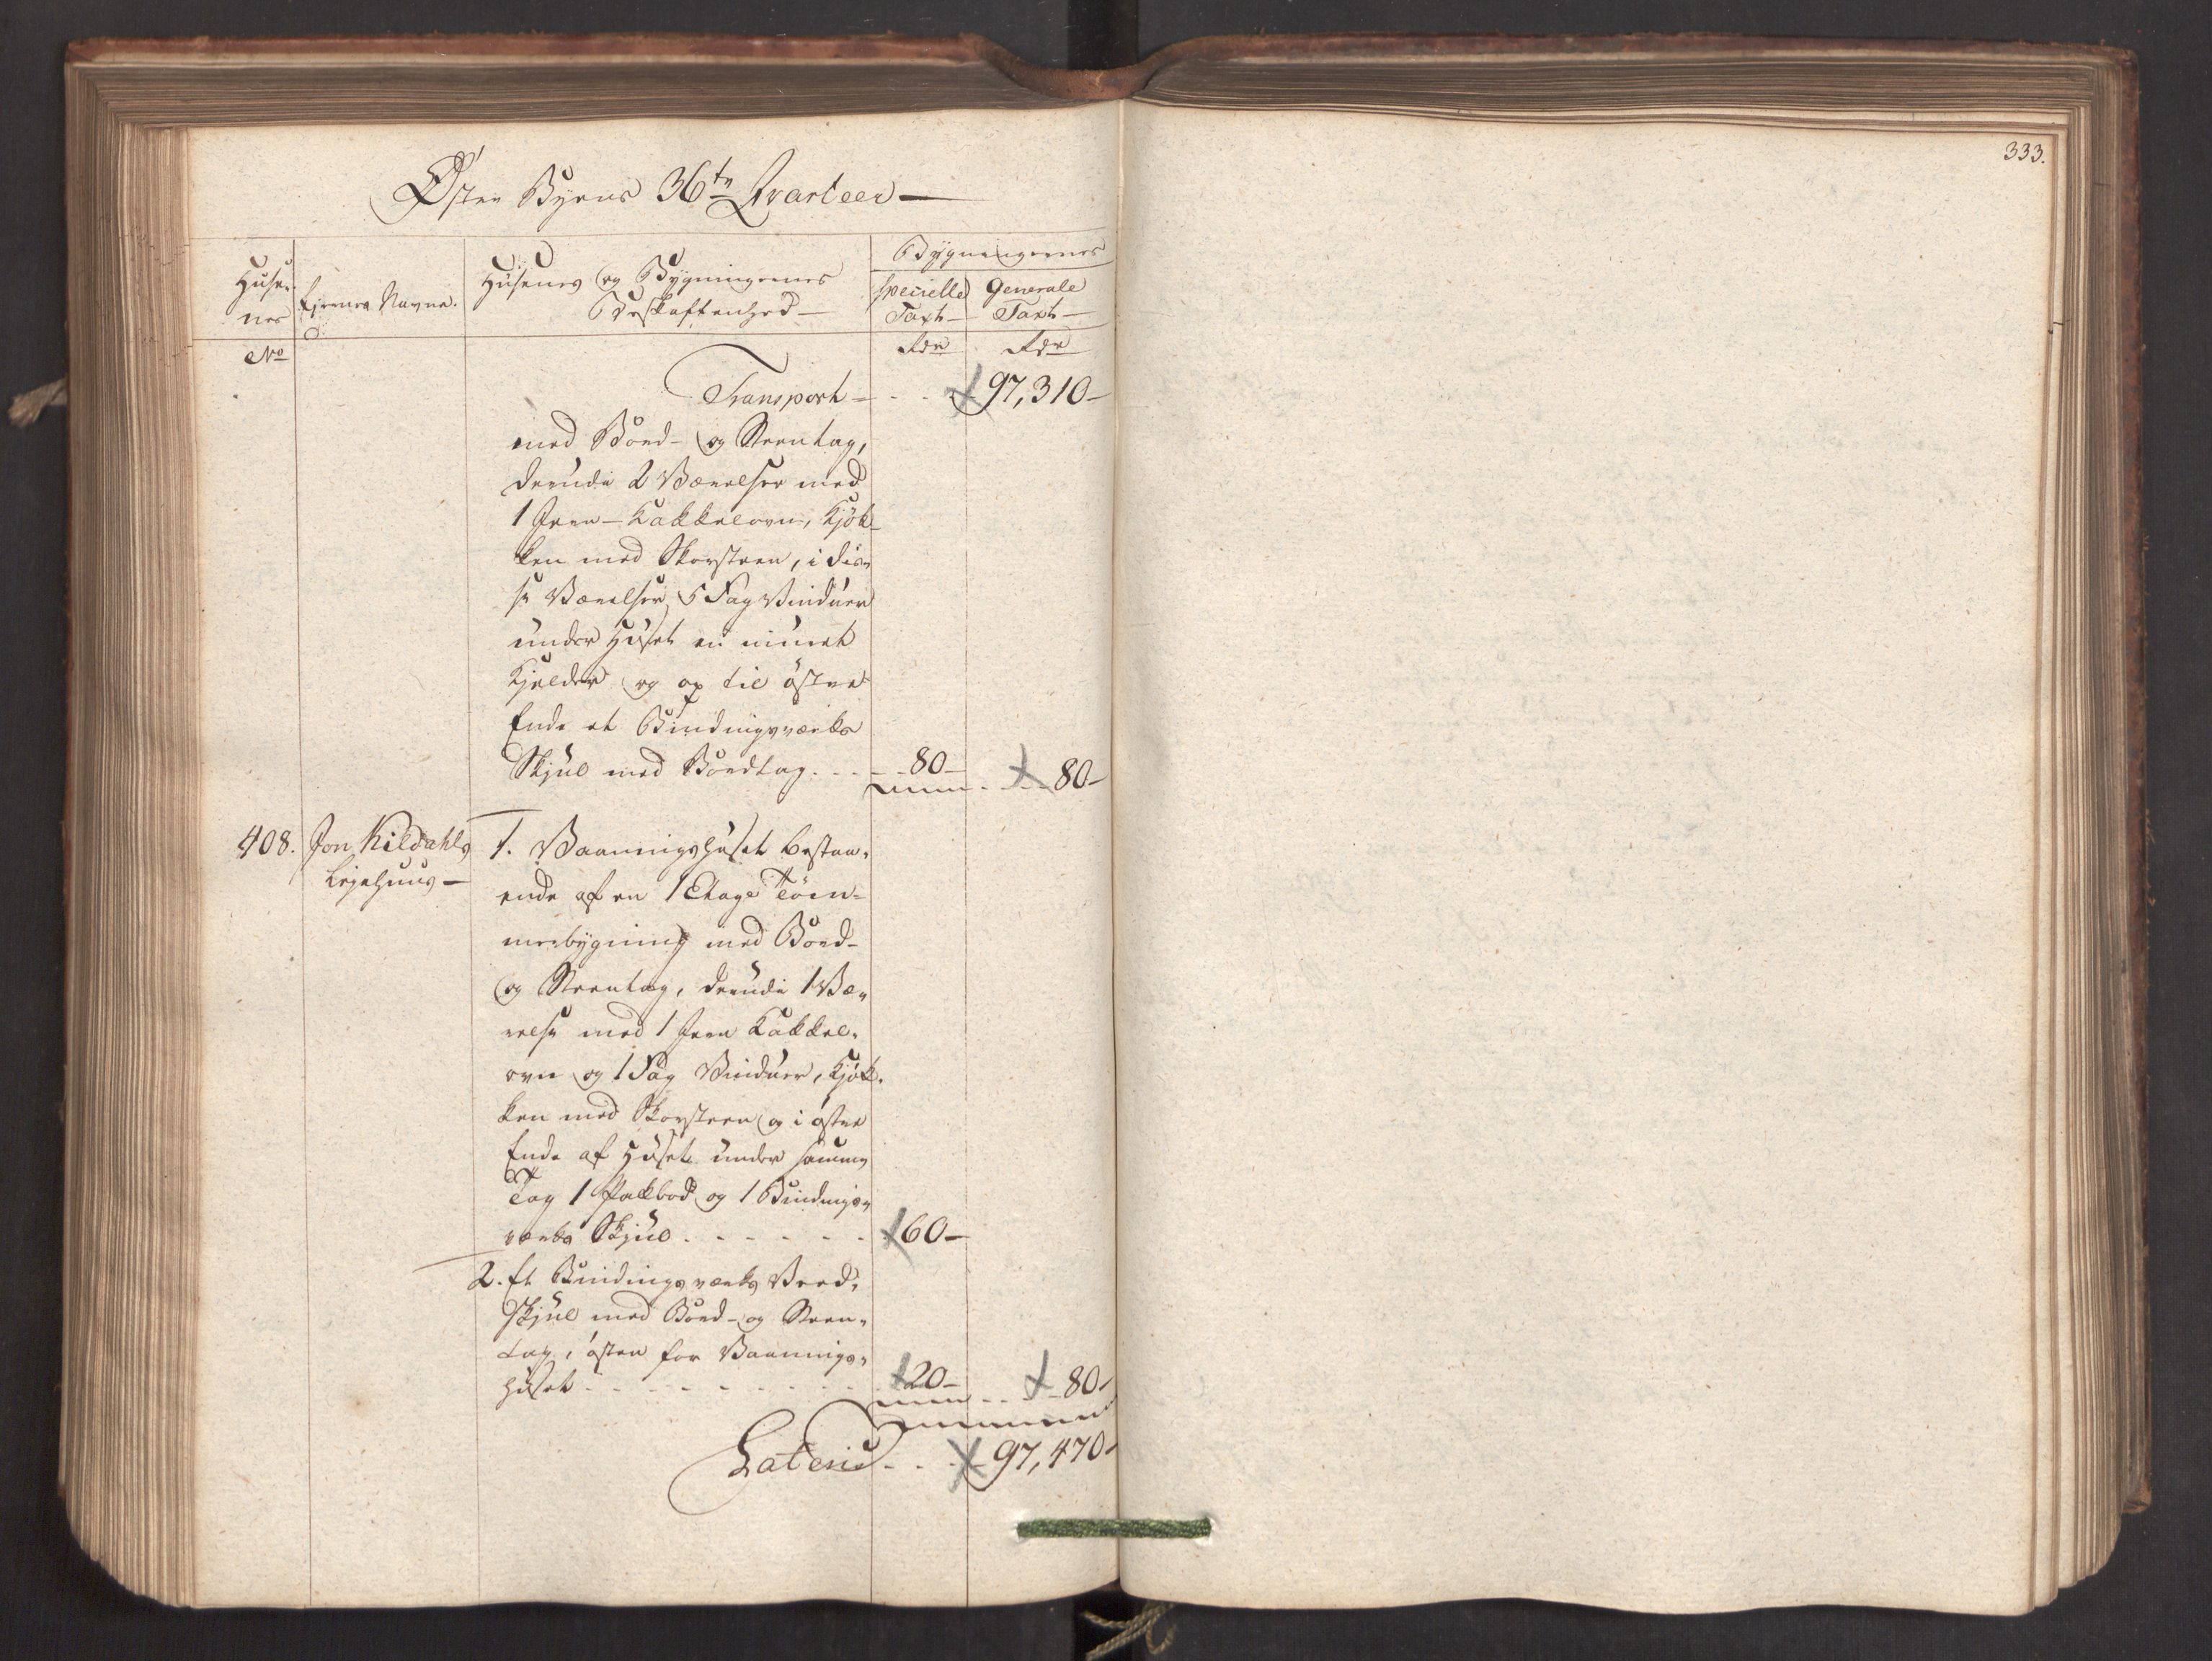 333.
Østre Byens 36te Qvarteer
Huse-
nes
No
Ejernes Navne.
Husenes og Bygningernes
Beskaffenhed
Bygningernes
specielle
Taxt
Generale
Taxt
Rdr
Rdr
Transport 97,310
med Bord- og Steentag,
derudi 2 Værelser med
1 Jern-Kakkelovn, Kjøk-
ken med Skorsteen, i dis-
se Værelser 5 Fag Vinduer
under Huset en muret
Kjelder og op til østre
Ende et Bindingsværks
Skjul med Bordtag - 80 - 80
408. Jon Kildahls
Lejehuus
1. Vaaningshuset bestaa-
ende af en 1 Etage Tøm-
merbygning med Bord-
og Steentag, derudi 1 Væ-
relse med 1 Jern Kakkel-
ovn og 1 Fag Vinduer, Kjøk-
ken med Skorsteen og i østre
Ende af Huset under samme
Tag 1 Pakbod og 1 Bindings-
værks Skjul 60
2. Et Bindingsværks Veed-
skjul med Bord- og Steen-
tag, østen for Vaanings-
huset 20 - 80
Lateris 97,470